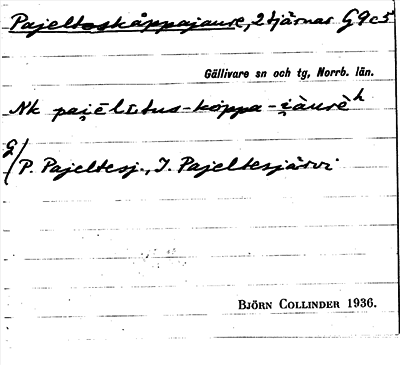 Pajeltoskåppajaure, 2 tjärnar G9c5
Gällivare sn och tg, Norrb. län.
Nk pai̯ēlttus-kåppa-i̯àurèʰ
G/ P. Pajeltesj., J. Pajeltesjärvi
BJÖRN COLLINDER 1936.